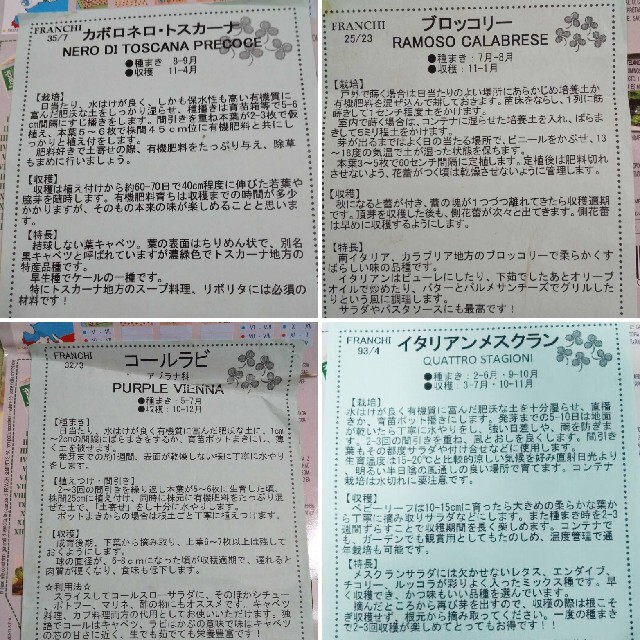 FRANCHI
35/7
カボロネロ・トスカーナ
NERO DI TOSCANA PRECOCE
●種まき 8-9月
●収穫 11-4月
【栽培】
日当たり、水はけが良く、しかも保水性も高い有機質に
富んだ肥沃な土をしっかり湿らせ、種播きは育苗箱等で5-6
cm間隔にすじ播きをします。間引きを重ね本葉が2-3枚で仮
植え、本葉5-6枚で株間45cm位に有機肥料と共にし
っかりと植え付をします。
肥料好きで土寄せの際、有機肥料をたっぷり与え、除草
もまめに行いましょう。
【収穫】
収穫は植え付けから約60-70日で40cm程度に伸びた若葉や
脇芽を随時します。有機肥料育ちは収穫までの時間が多少
かかりますが、そのもの本来の味が楽しめることと思いま
す。
【特長】
結球しない葉キャベツ。葉の表面はちりめん状で、別名
黒キャベツと呼ばれていますが濃緑色でトスカーナ地方の
特産品種です。
早生種でケールの一種です。
特にトスカーナ地方のスープ料理、リボリタには必須の
材料です！
FRANCHI
25/23
ブロッコリー
RAMOSO CALABRESE
●種まき：7月-8月
●収穫：11-1月
【栽培】
戸外で蒔く場合は日当たりのよい場所にあらかじめ培養土か
有機肥料を混ぜ込んで耕しておきます。苗床をならし、1列に筋
蒔きして1センチ程度土をかけます。
室内で蒔く場合は、コンテナに湿らせた培養土を入れ、ばらま
きして5ミリ程土をかけます。
芽が出るまではよく日の当たる場所で、ビニールをかぶせ、13
-18度の気温で土が湿った状態を保ちます。
本葉3-5枚で60センチ間隔に定植します。定植後は肥料切れ
させないよう、花蕾がつく頃は乾燥させないように管理します。
【収穫】
秋になると蕾が付き、蕾の塊が1つづつ離れてきたら収穫適期
です。頂芽を収穫した後も、側花蕾が次々と出てきます。側花蕾
は早めに収穫するようにします。
【特長】
南イタリアン、カラブリア地方のブロッコリーで柔らかくす
ばらしい味の品種です。
イタリアンはピューレにしたり、下茹でしたあとオリーブ
オイルで炒めたり、バターとパルメザンチーズでグリルした
りという風に調理します。
サラダやパスタソースにも最高です！
FRANCHI
32/3
コールラビ
アブラナ科
PURPLE VIENNA
●種まき：5-7月
●収穫：10-12月
【種まき】
日当たり、水はけが良く有機質に富んだ肥沃な土に、1cm
~2cmの間隔にばらまきをするか、育苗ポットまきにし、薄
く土を被せます。
発芽までの約1週間、表面が乾燥しない様に丁寧に水やり
をします。
【植えつけ・間引き】
2~3回の間引きを繰り返し本葉が5~6枚に生育した頃、
株間25cmに植え付け、同時に株元に有機肥料をたっぷり混
ぜた土で、「土寄せ」をし十分に水やりします。
ポットまきからの場合は根土ごと丁寧に植えつけます。
【収穫】
成育後期、下葉から摘み取り、上葉6~7枚以上は残して
おくようにします。
球の直径が、6~8cmになった頃が収穫適期で、遅れると
肉質が硬くなり、食味も低下します。
☆利用法☆
スライスしてコールスローサラダに、そのほかシチュー
、ポトフー、マリネ、酢の物にもオススメです。キャベツ
料理、カブ料理両方の代用としてお使いいただけます。独
語でコールはキャベツ、ラビはかぶの意味で味はキャベツ
の芯の甘さに近く、生でも茹でても栄養豊富です！
FRANCHI
93/4
イタリアンメスクラン
QUATTRO STAGIONI
●種まき：2-6月・9-10月
●収穫：3-7月・10-11月
【栽培】
水はけが良く有機質に富んだ肥沃な土を十分湿らせ、直播
きか、育苗ポット播きにします。発芽までの5-10日は地面
が乾いたら丁寧に水やりをし、強い日差しや、雨を防ぎま
す。2-3回の間引きを重ね、風とおしを良くします。間引き
葉もその都度サラダや付け合せなどに使用します。
生育温度は15-20℃と比較的涼しい気候を好み直射日光より
、明るい半日陰の風通しの良い場所で育てます。コンテナ
栽培は水切れに要注意です。
【収穫】
ベビーリーフは10-15cmに育ったら大きめの柔らかな葉か
ら丁寧に摘み取りサラダなどにします。また種まき時を2-3
週間ずらすことで収穫期間を長く楽しめます。コンテナで
も、ガーデンでも観賞用としてもたのしめ、温度管理で通
年栽培も可能です。
【特長】
メスクランサラダには欠かせないレタス、エンダイブ、
チコリー、ルッコラが彩りよく入ったミックス種です。早
く収穫でき、かつ味もいい品種を選んでいます。
摘んだところから再び芽を出すので、収穫の際は根こそ
ぎ収穫せず、根元から摘み取ってください。一度の種まき
で2-3回収穫が楽しめてとってもお得です！！